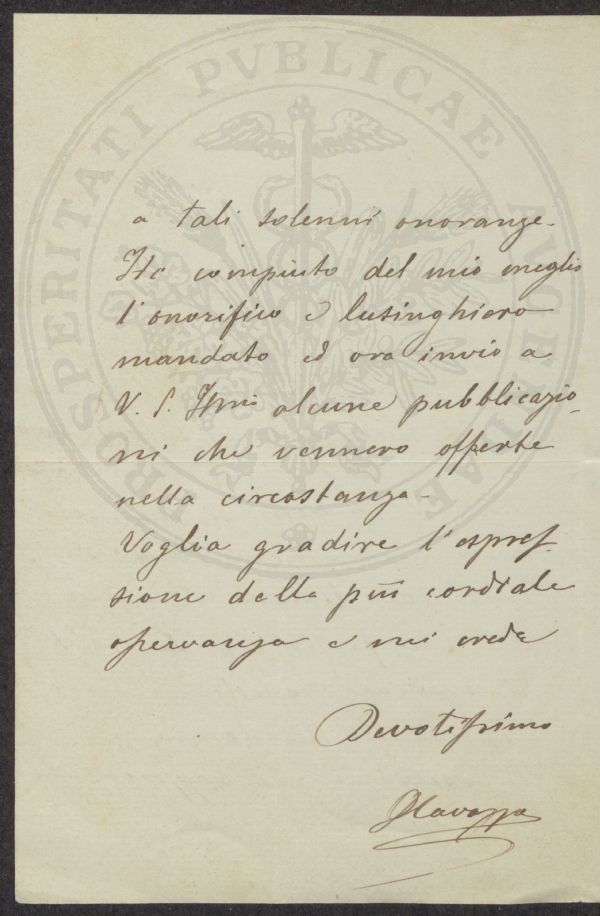 PROSPERITATI PVBLICAE AVGENDAE
a tali solenni onoranze.
Ho compiuto del mio meglio
l'onorifico e lusinghiero
mandato ed ora invio a
V. S. Illma alcune pubblicazio-
ni che vennero offerte
nella circostanza.
Voglia gradire l'espres-
sione della più cordiale
osservanza e mi creda
Devotissimo